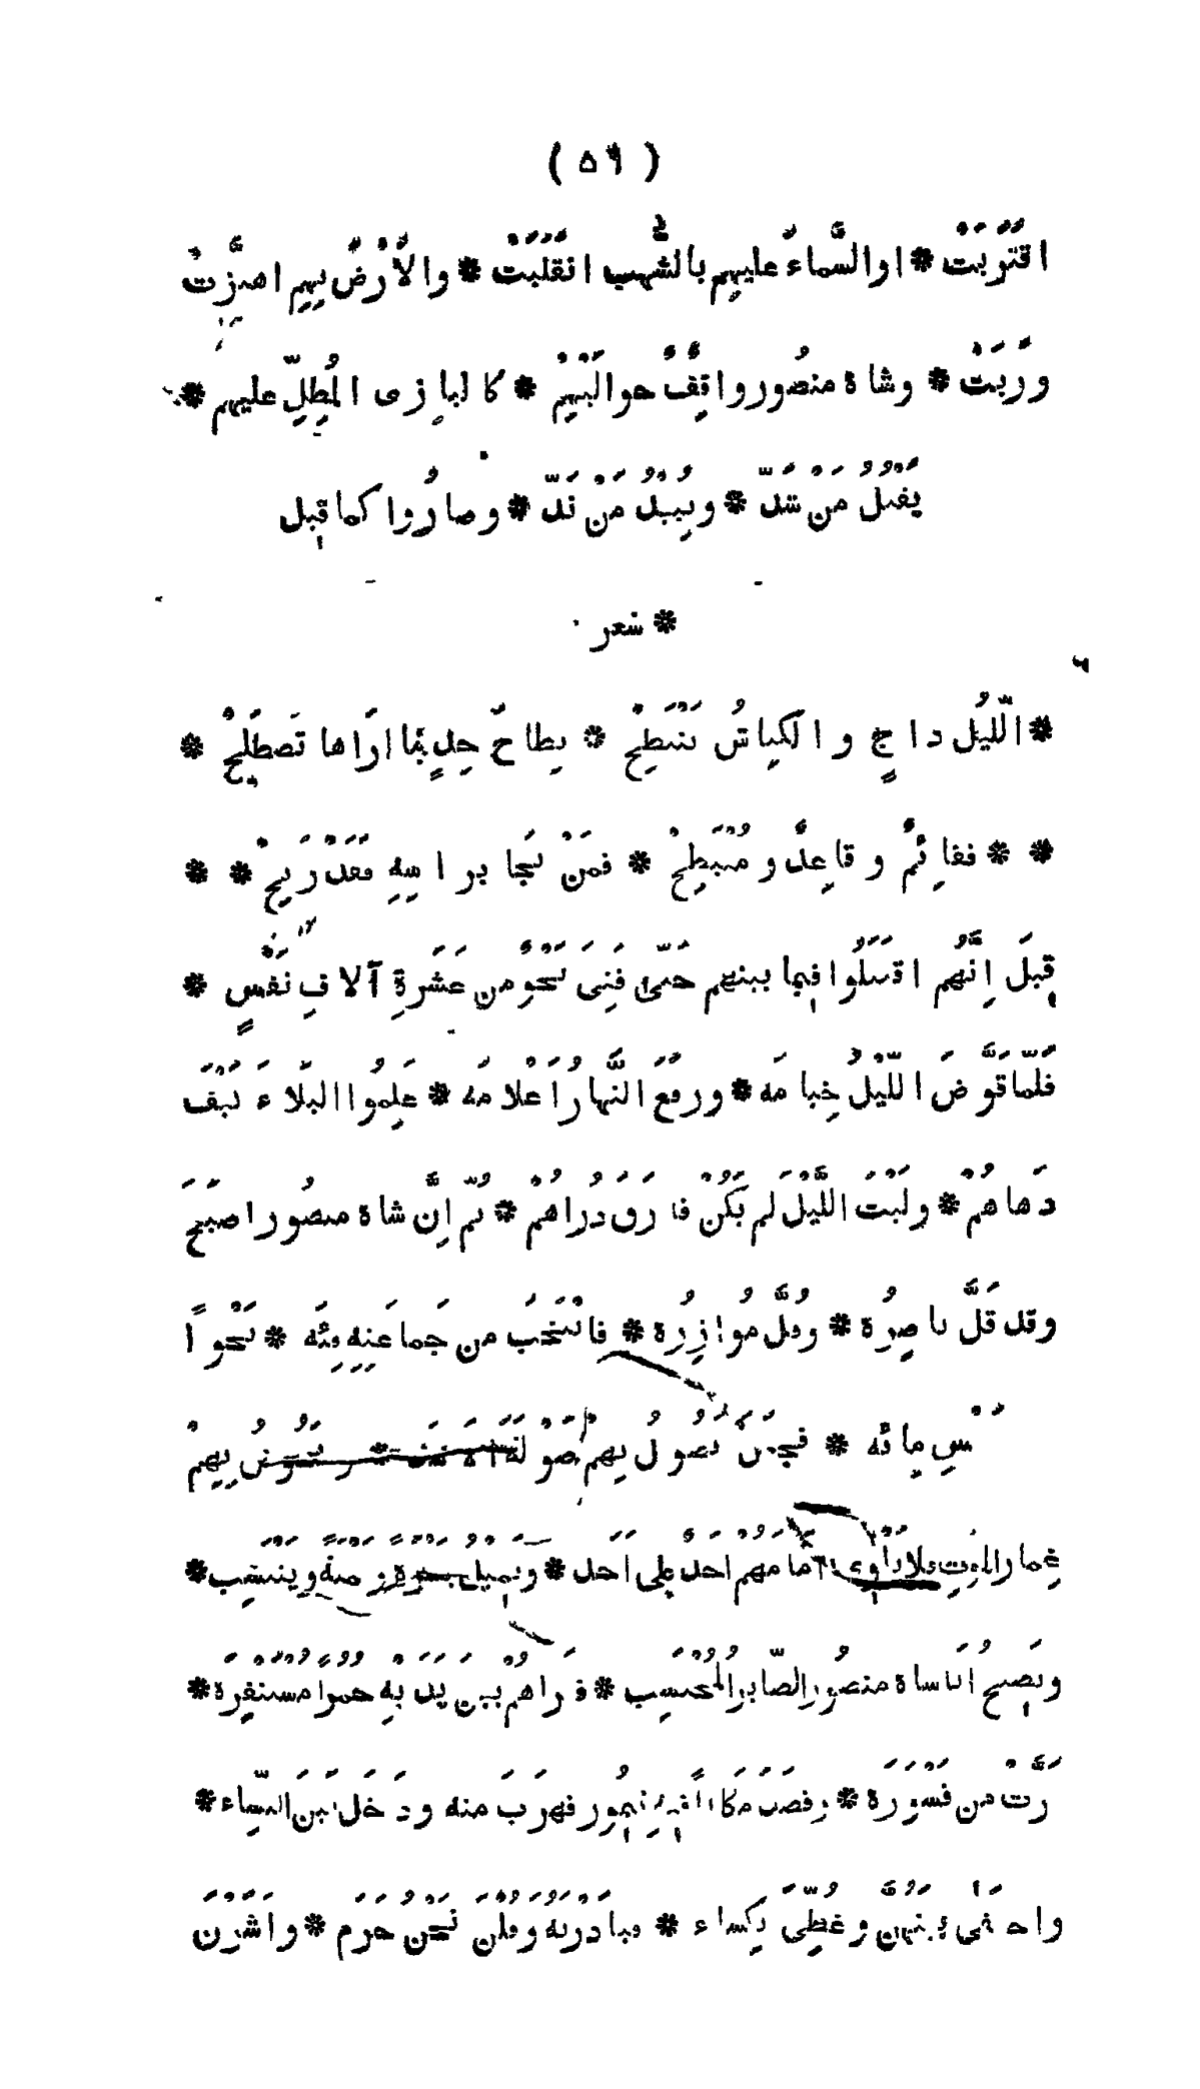 ( ٥٩ )
اقْتَرَبَتْ * او السَّماءُ عليهم بالشُّهب انْقَلَبَتْ * والْأَرْضُ بِهِم اهتزَّتْ
ورَبَتْ * وشاه منصُور واقِفٌ حوالَيْهِمْ * كالبازى المُطِلِّ عليهم *
يَقْتُلُ مَنْ شَذَّ * ويُبِيدُ مَنْ نَدَّ * وصارُوا كما قِيل
* شعر
* اللَّيْلُ داجٍ والكِباشُ تَنْتَطِحْ * نِطاحَ جِدٍّ ما اراها تَصطَلِحْ *
* * فقائِمٌ وقاعِدٌ ومُنْبَطِحْ * فمَنْ نَجا براسِهِ فَقَدْ رَبِحْ * *
قِيلَ اِنَّهُم اقتتَلُوا فيما بينهم حَتَّى فَنِىَ نَحْوٌ من عَشَرَةِ آلافِ نَفْسٍ *
فلَمَّا قَوَّضَ اللَّيْلُ خِيامَه * ورفَعَ النَّهارُ اَعْلامَه * عَلِمُوا البَلاءَ كَيْفَ
دَهاهُمْ * ولَيْتَ اللَّيْلَ لم يَكُنْ فارق ذُراهُمْ * ثُمّ اِنَّ شاه منصُور اصبَحَ
وقد قَلَّ ناصِرُه * وفُلَّ مُوازِرُه * فانْتَخَبَ من جَماعَتِهِ فِئَه * نَحْوًا
مِائه * فجعَلَ يَصُولُ بِهِم صَوْلَةَ بِهِمْ
غِمارَ الموت اَحَدٌ على اَحَد * ويَمِيلُ يَمْنَةً ويَنْتَسِب *
ويَصِيحُ انا شاه منصُور الصّابِرُ المُحْتَسِب * فتَراهُم بين يَدَيْهِ حُمُرٌ مُسْتَنْفِرَة *
فَرَّتْ من قَسْوَرَة * وقَصَدَ مَكاناً فيه تيمُور فهرَبَ منه ودَخَل بَينَ النِّساء *
واختَفى بينَهُنَّ وغُطِّىَ بِكساء * فبادَرْنَهُ وقُلْنَ نَحْنُ حُرَم * واَشَرْنَ